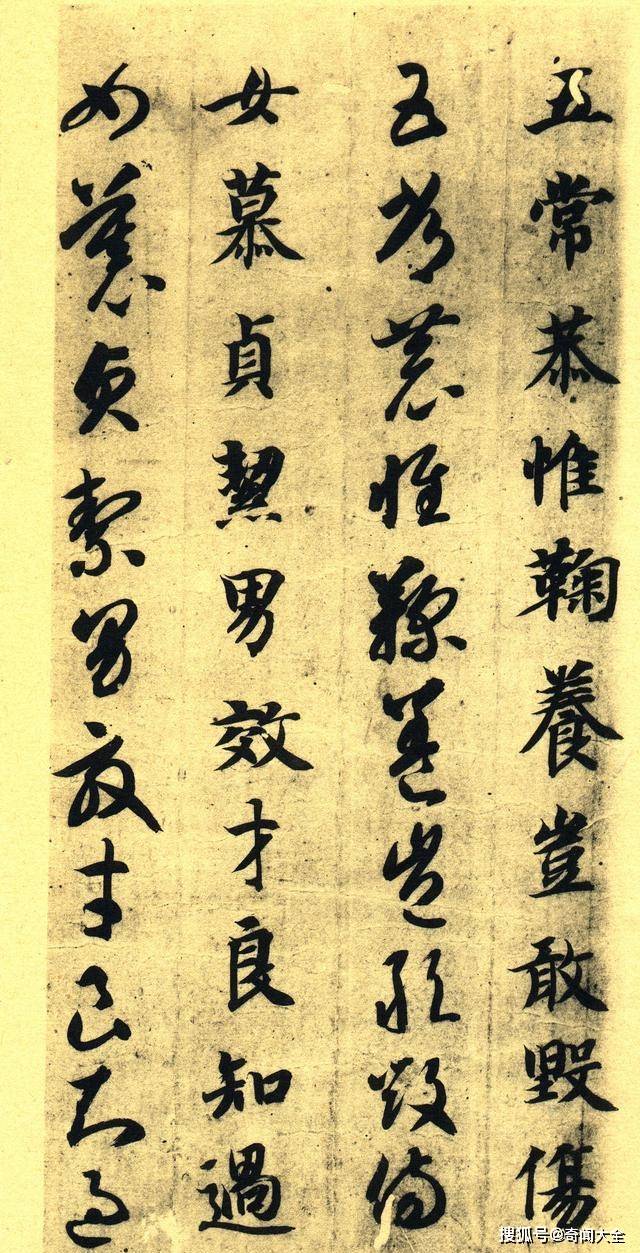 五常恭惟鞠養豈敢毀傷
五常恭惟鞠養豈敢毀傷
女慕貞絜男效才良知過
女慕貞絜男效才良知過
搜狐号@奇闻大全